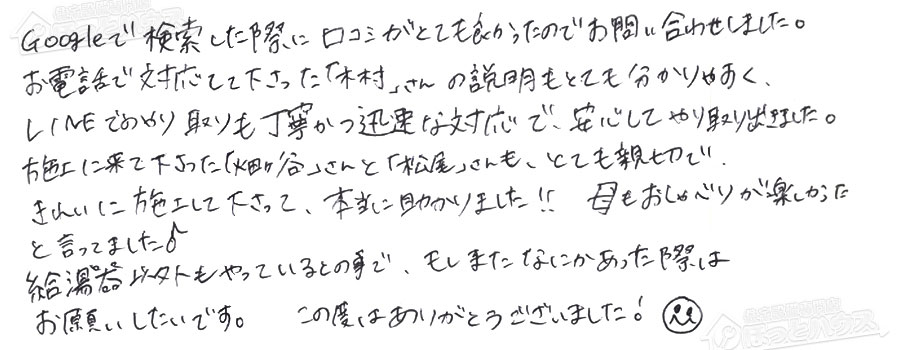 Googleで検索した際に口コミがとても良かったのでお問い合わせしました。
お電話で対応して下さった「木村」さんの説明もとても分かりやすく、
LINEでのやり取りも丁寧かつ迅速な対応で、安心してやり取り出来ました。
施工に来て下さった「畑ヶ谷」さんと「松尾」さんも、とても親切で
きれいに施工して下さって、本当に助かりました!! 母もおしゃべりが楽しかった
と言ってました♪
給湯器以外もやっているとの事で、もしまたなにかあった際は
お願いしたいです。 この度はありがとうございました!